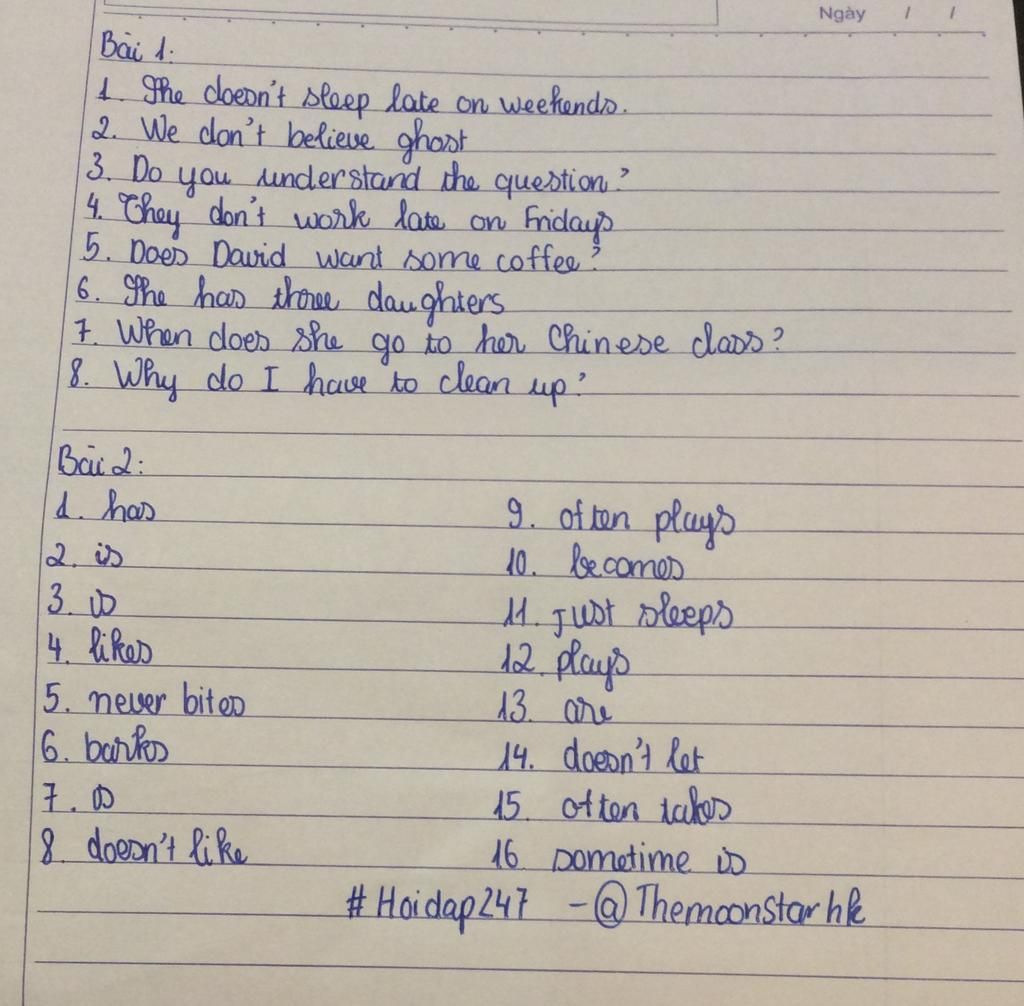 Ngày / /
Bài 1:
1. She doesn't sleep late on weekends.
2. We don't believe ghost
3. Do you understand the question?
4. They don't work late on Fridays
5. Does David want some coffee?
6. She has three daughters
7. When does she go to her Chinese class?
8. Why do I have to clean up?
Bài 2:
1. has
2. is
3. is
4. likes
5. never bites
6. barks
7. is
8. doesn't like
9. often plays
10. becomes
11. just sleeps
12. plays
13. are
14. doesn't let
15 often takes
16 sometime is
#Hoidap247 - @Themoonstarhk